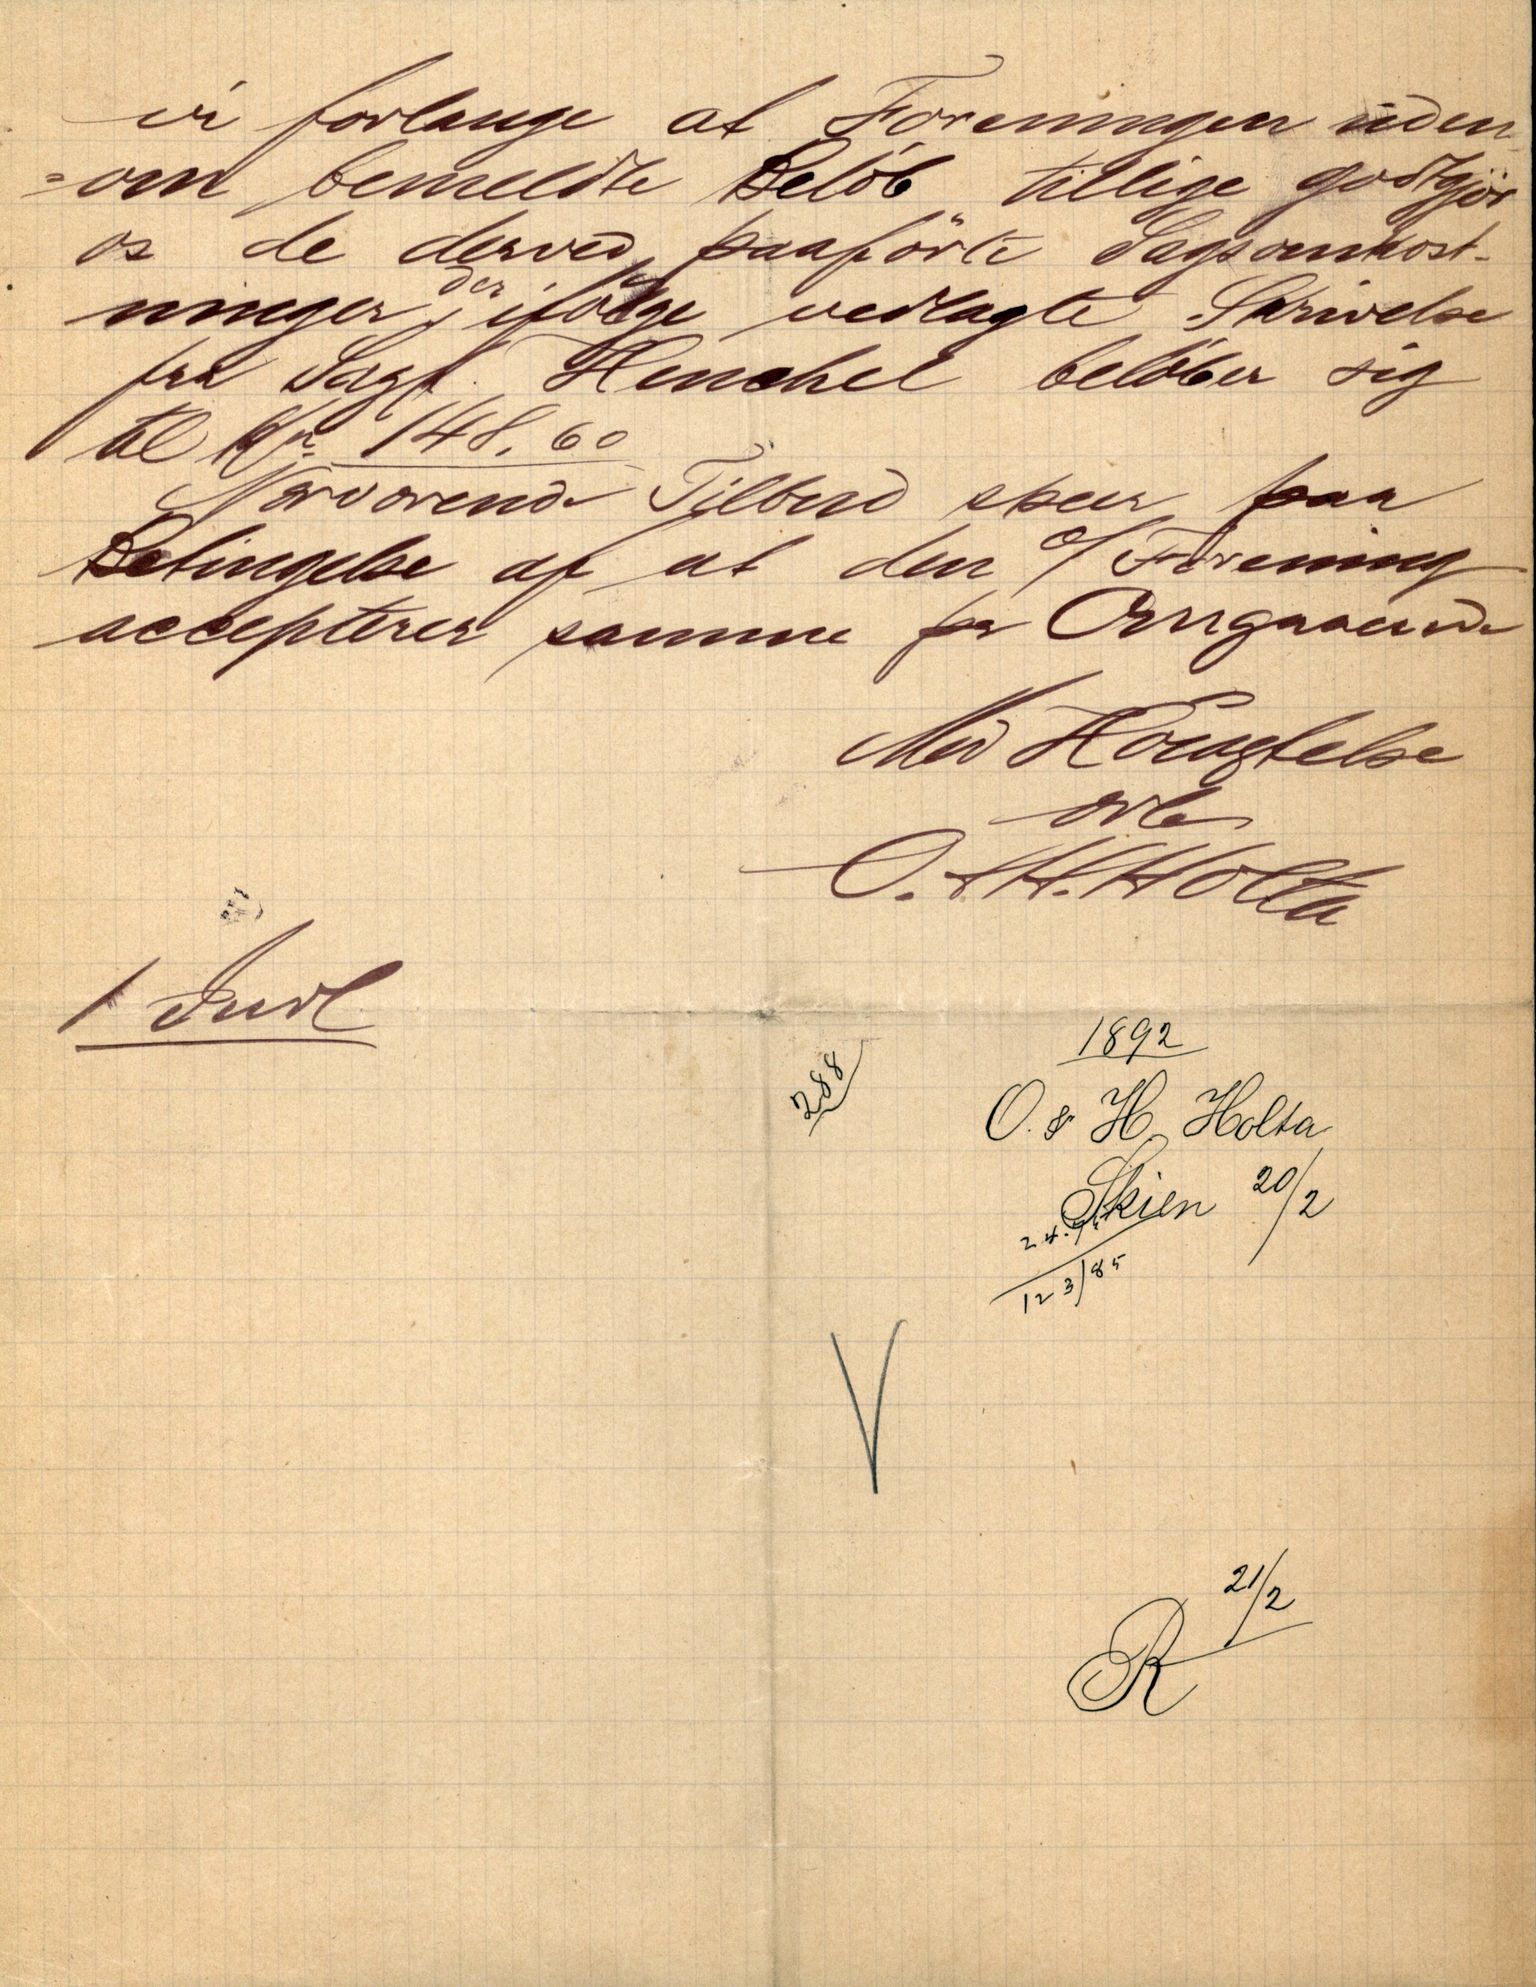 vi forlange at Foreningen uden-
=om bemeldte Beløb tillige godtgjør
os de derved paaførte Sagsomkost-
ninger, der ifølge vedlagte Skrivelse
fra Sagf. Henchel beløber sig
til Kr. 148.60
Nærværende Tilbud skeer paa
Betingelse af at den o/ Forening
accepterer samme pr Omgaaende
Med Høiagtelse
O. & H. Holta
1 Indl.
1892
288
O. & H. Holta
Skien 20/2
24.
123/85
V
21/2
R